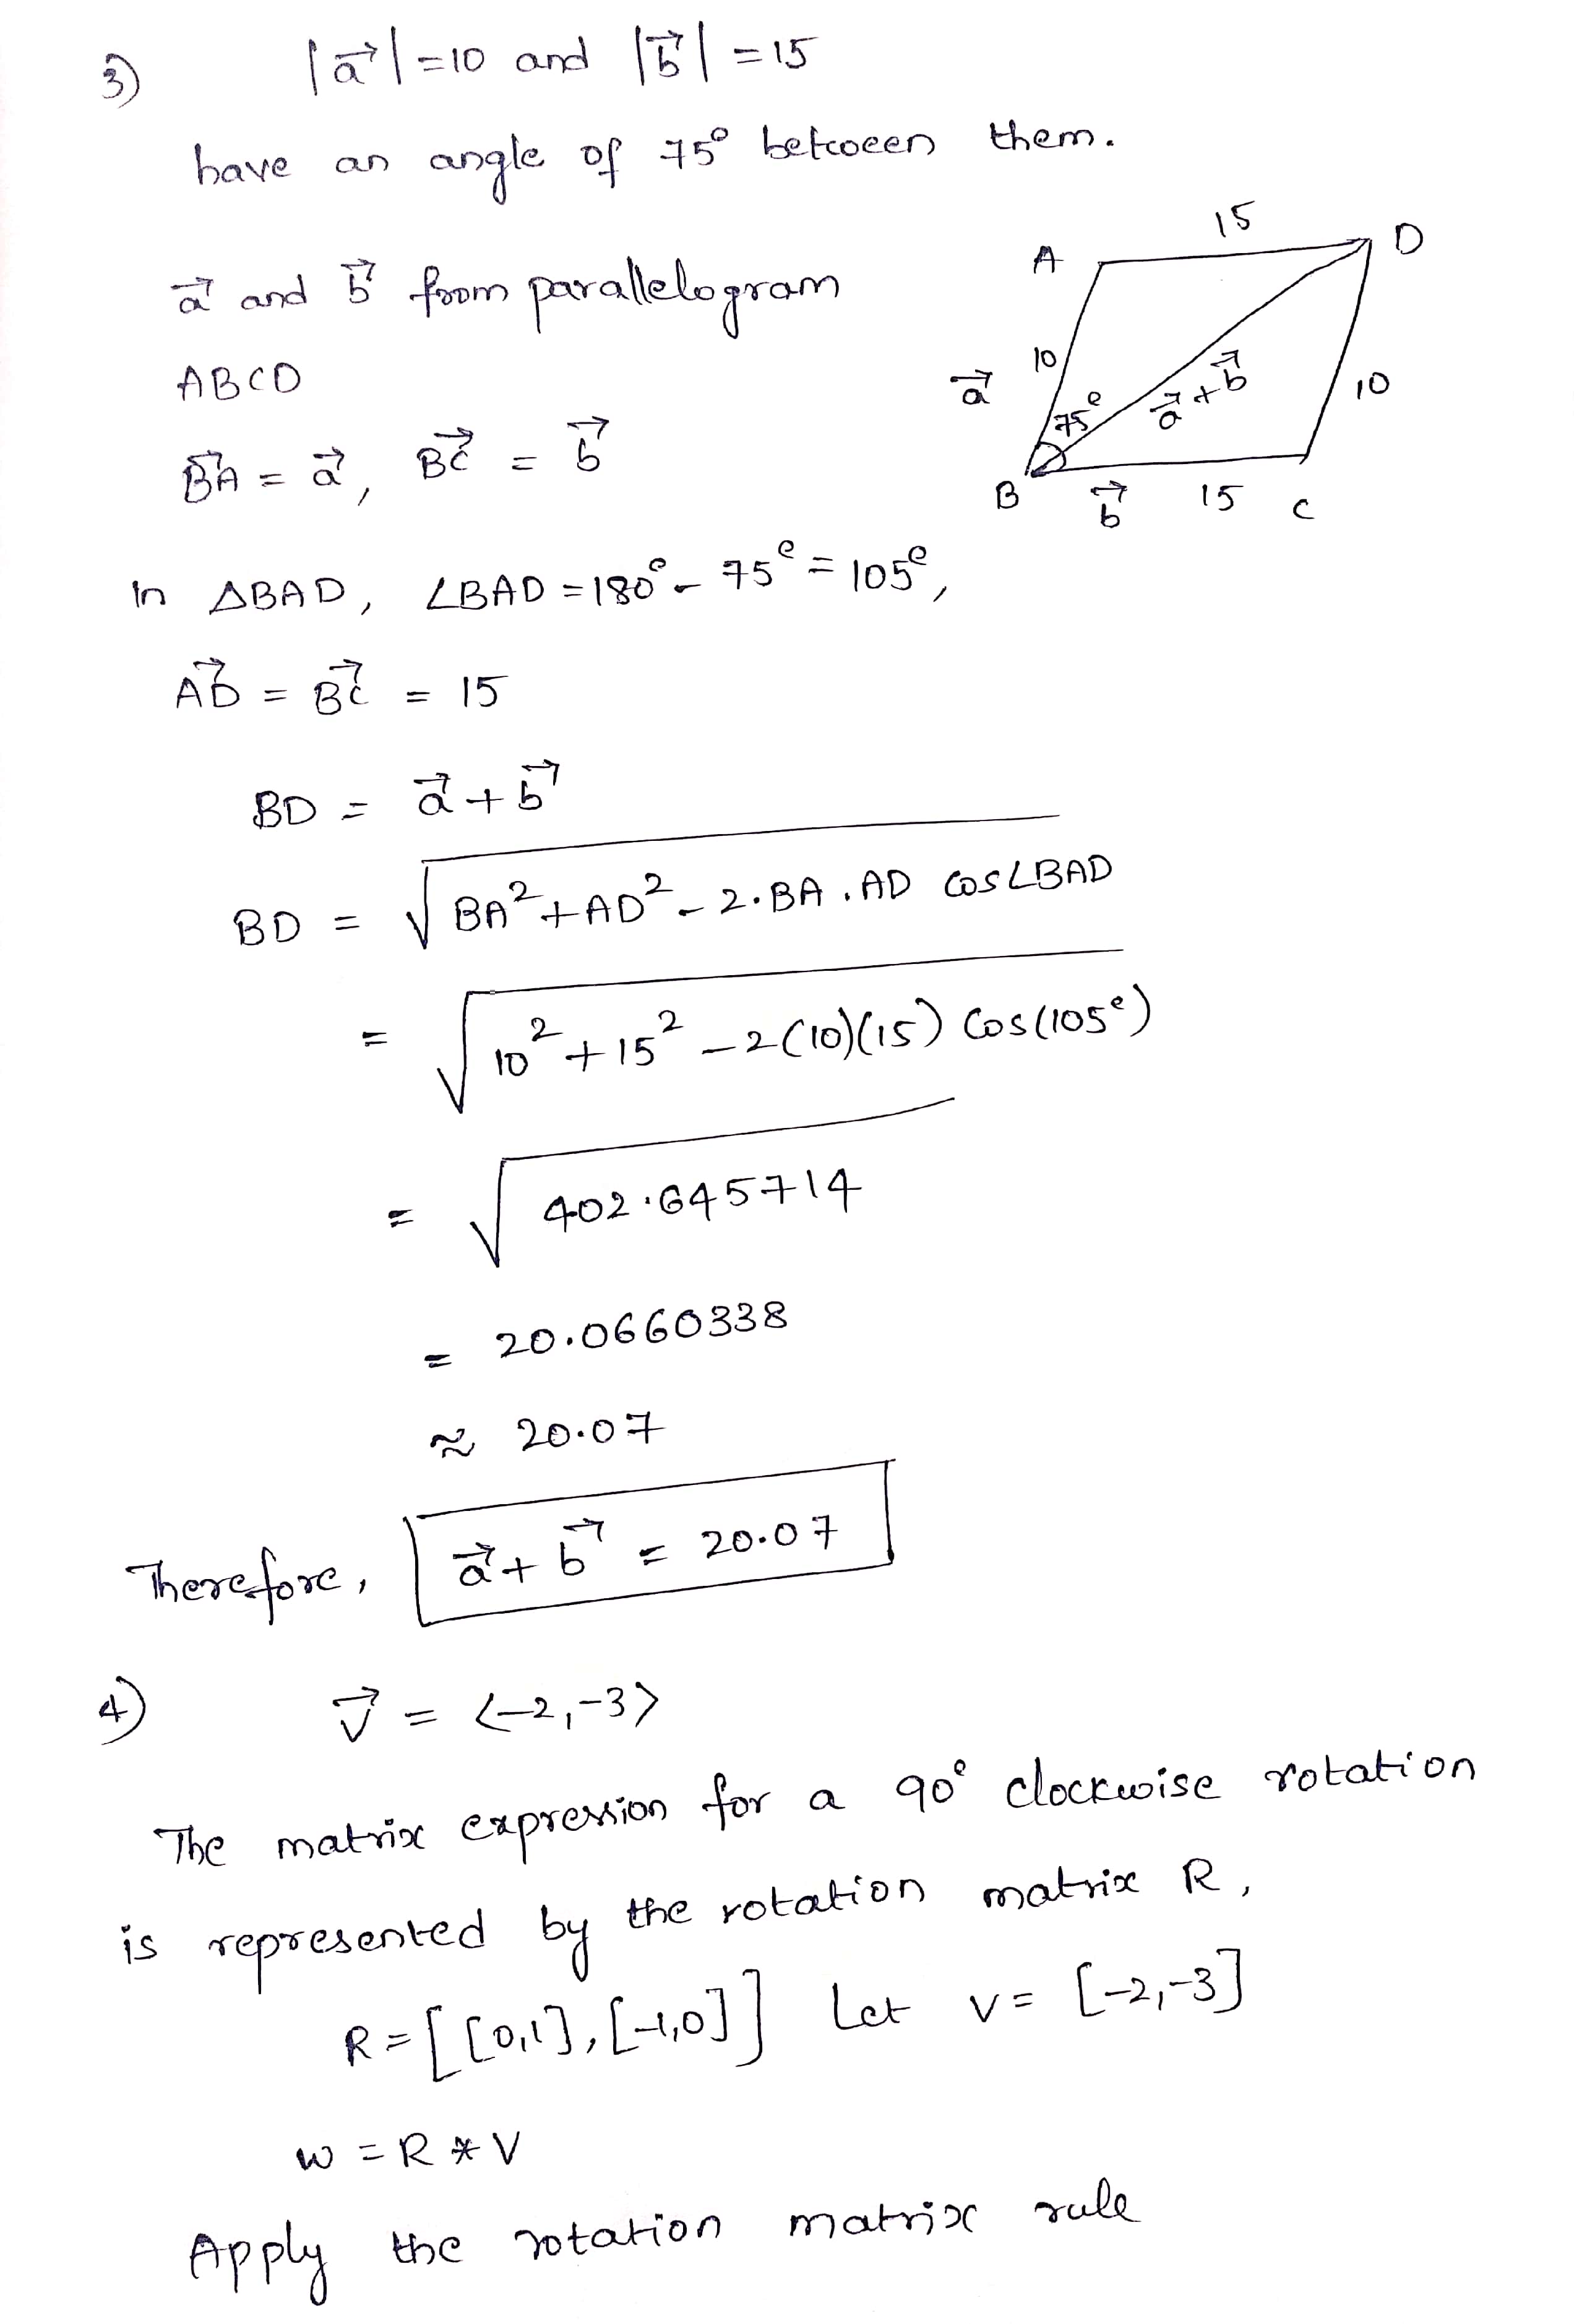 3) |a⃗| = 10 and |b⃗| = 15
have an angle of 75° between them.
a⃗ and b⃗ from parallelogram
ABCD
B⃗A = a⃗, B⃗C = b⃗
15
A
D
10
a⃗
75°
a⃗ + b⃗
10
B
b⃗
15
C
In ΔBAD, ∠BAD = 180° - 75° = 105°,
A⃗D = B⃗C = 15
BD = a⃗ + b⃗
BD = √BA² + AD² - 2.BA.AD Cos∠BAD
= √10² + 15² - 2(10)(15) Cos(105°)
= √402.645714
= 20.0660338
≈ 20.07
Therefore, a⃗ + b⃗ = 20.07
4) V⃗ = <-2, -3>
The matrix expression for a 90° clockwise rotation
is represented by the rotation matrix R,
R = [[0,1], [-1,0]] Let v = [-2,-3]
w = R * V
Apply the rotation matrix rule